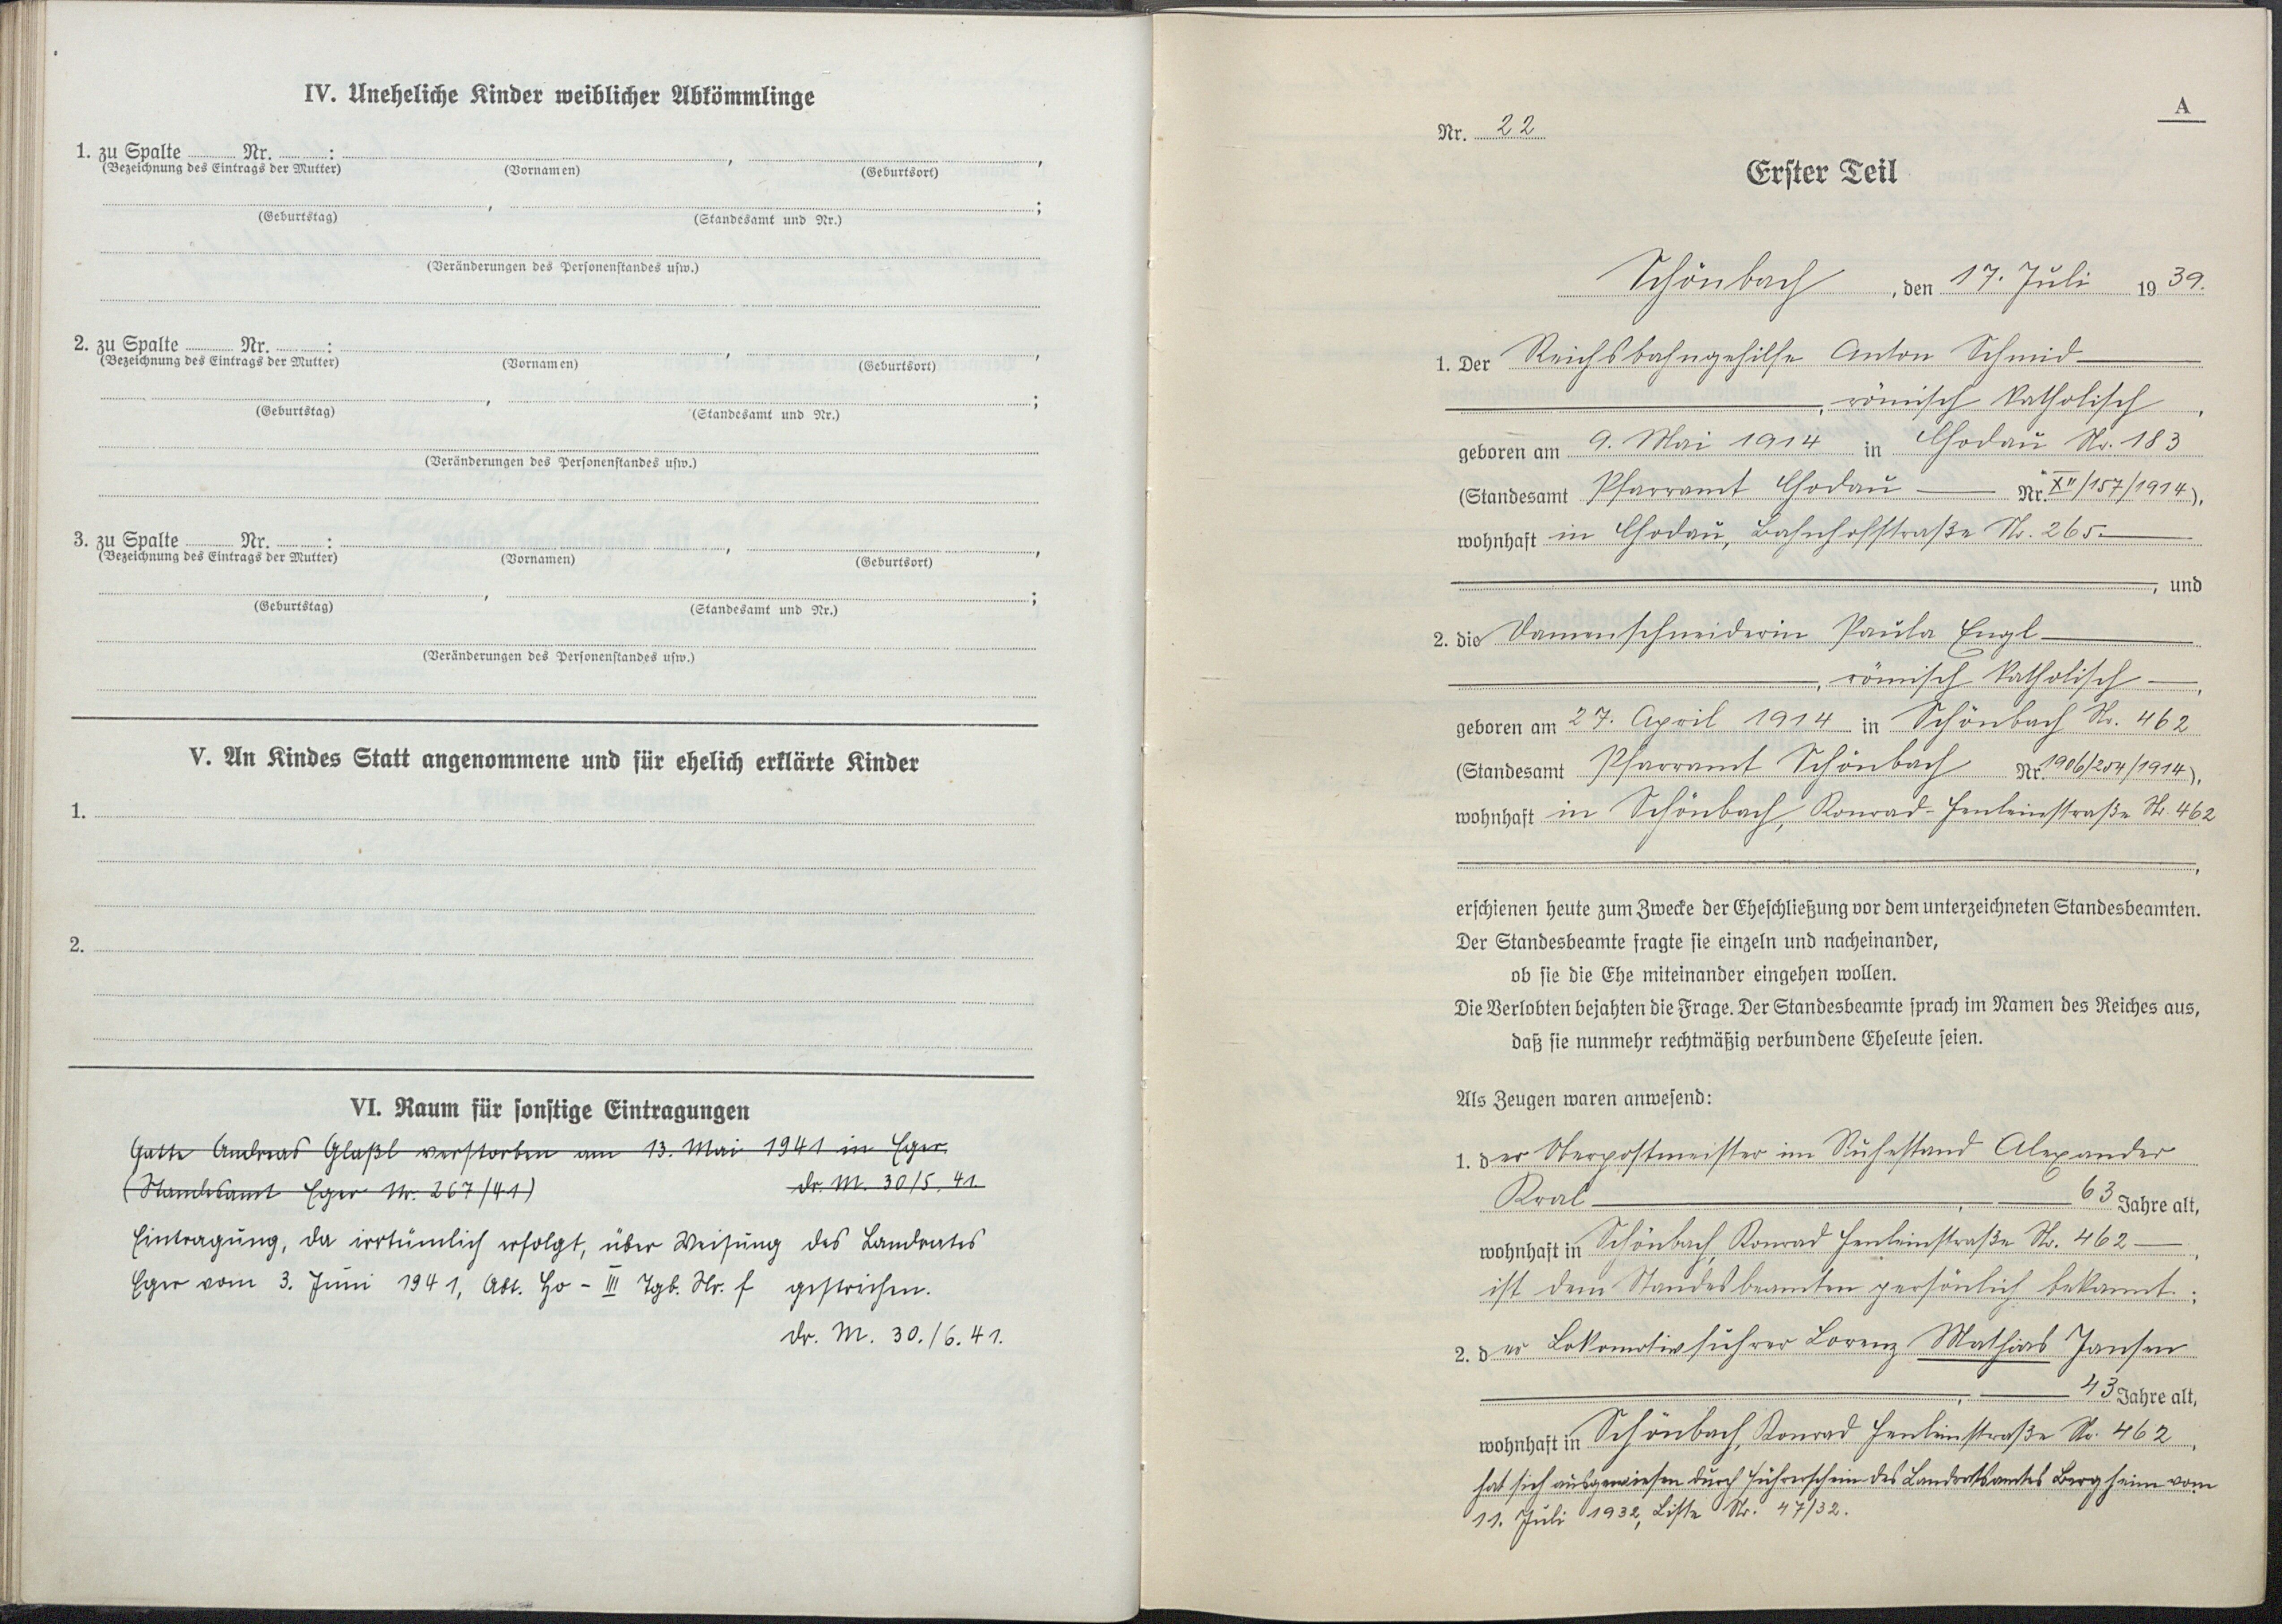 IV. Uneheliche Kinder weiblicher Abkömmlinge
1. zu Spalte Nr. : , ,
(Bezeichnung des Eintrags der Mutter) (Vornamen) (Geburtsort)
, ;
(Geburtstag) (Standesamt und Nr.)
(Veränderungen des Personenstandes usw.)
2. zu Spalte Nr. : , ,
(Bezeichnung des Eintrags der Mutter) (Vornamen) (Geburtsort)
, ;
(Geburtstag) (Standesamt und Nr.)
(Veränderungen des Personenstandes usw.)
3. zu Spalte Nr. : , ,
(Bezeichnung des Eintrags der Mutter) (Vornamen) (Geburtsort)
, ;
(Geburtstag) (Standesamt und Nr.)
(Veränderungen des Personenstandes usw.)
V. An Kindes Statt angenommene und für ehelich erklärte Kinder
1.
2.
VI. Raum für sonstige Eintragungen
Gatte Andreas Glaßl verstorben am 13. Mai 1941 in Eger
(Standesamt Eger Nr. 267/41) Dr. M. 30/5. 41.
Eintragung, da irrtümlich erfolgt, über Weisung des Landrates
Eger vom 3. Juni 1941, Abt. Ho - III Tgb. Nr. f gestrichen.
Dr. M. 30./6. 41.
A
Nr. 22
Erster Teil
Schönbach, den 17. Juli 1939.
1. Der Reichsbahngehilfe Anton Schmid
, römisch katholisch,
geboren am 9. Mai 1914 in Chodau Nr. 183
(Standesamt Pfarramt Chodau Nr. XII/157/1914),
wohnhaft in Chodau, Bahnhofstraße Nr. 265.
, und
2. die Damenschneiderin Paula Engl
, römisch katholisch,
geboren am 27. April 1914 in Schönbach Nr. 462
(Standesamt Pfarramt Schönbach Nr. 1906/204/1914),
wohnhaft in Schönbach, Konrad-Henleinstraße Nr. 462
,
erschienen heute zum Zwecke der Eheschließung vor dem unterzeichneten Standesbeamten.
Der Standesbeamte fragte sie einzeln und nacheinander,
ob sie die Ehe miteinander eingehen wollen.
Die Verlobten bejahten die Frage. Der Standesbeamte sprach im Namen des Reiches aus,
daß sie nunmehr rechtmäßig verbundene Eheleute seien.
Als Zeugen waren anwesend:
1. der Oberpostmeister im Ruhestand Alexander
Kral, 63 Jahre alt,
wohnhaft in Schönbach, Konrad Henleinstraße Nr. 462,
ist dem Standesbeamten persönlich bekannt.;
2. der Lokomotivführer Lorenz Mathias Jansen
, 43 Jahre alt,
wohnhaft in Schönbach, Konrad Henleinstraße Nr. 462,
hat sich ausgewiesen durch Führerschein des Landratsamtes Bergheim vom
11. Juli 1932, Liste Nr. 47/32.